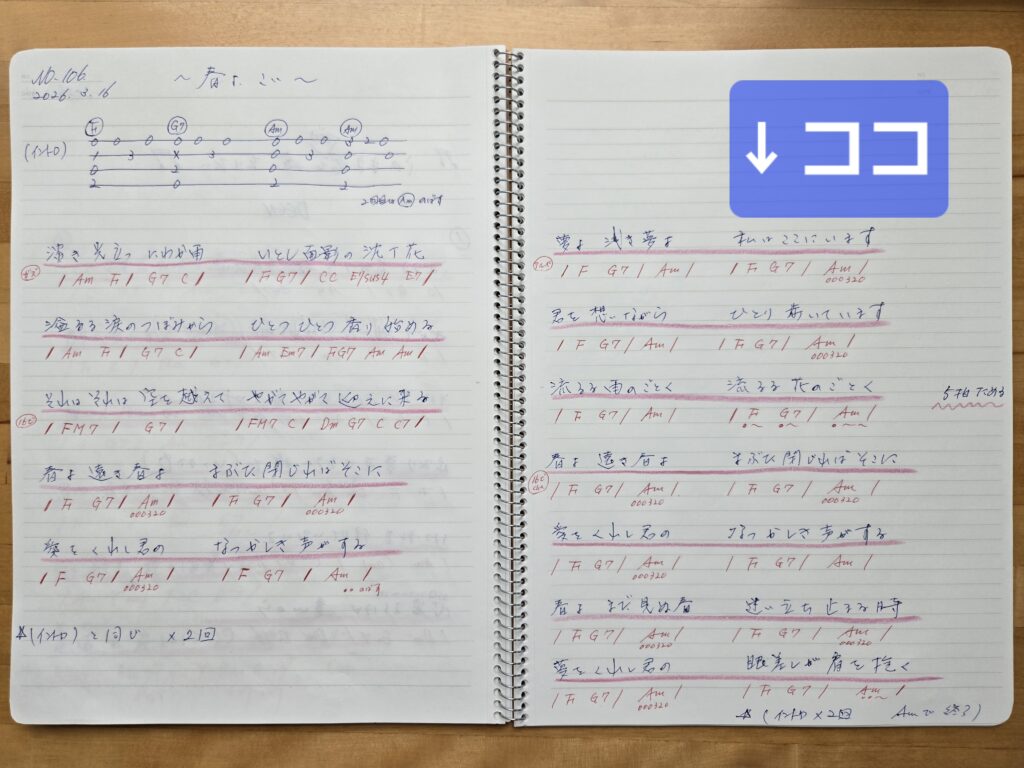 NO-106
2026.3.16
～春よ、こい～
F G7 Am Am
(イントロ)
0 0 0 0 0 0 0 0 0 3 2 0
1 3 x 3 0 3 0 0
0 2 0 0
2 0 2 2
2回目は Am のばす
淡き光立つ にわか雨 いとし面影の沈丁花
/ Am F / G7 C / / F G7 / C C E7sus4 E7 /
溢るる涙のつぼみから ひとつひとつ香り始める
/ Am F / G7 C / / Am Em7 / F G7 Am Am /
それは それは 空を越えて やがてやがて 迎えに来る
/ FM7 / G7 / / FM7 C / Dm G7 C C7 /
春よ 遠き春よ まぶた閉じればそこに
/ F G7 / Am / / F G7 / Am /
000320 000320
愛をくれし君の なつかしき声がする
/ F G7 / Am / / F G7 / Am /
000320 のばす
☆(イントロ) と同じ ×2回
↓ココ
夢よ 浅き夢よ 私はここにいます
/ F G7 / Am / / F G7 / Am /
000320
君を想いながら ひとり歩いています
/ F G7 / Am / / F G7 / Am /
000320
流るる雨のごとく 流るる花のごとく
5拍ためる
/ F G7 / Am / / F G7 / Am /
春よ 遠き春よ まぶた閉じればそこに
/ F G7 / Am / / F G7 / Am /
000320 000320
愛をくれし君の なつかしき声がする
/ F G7 / Am / / F G7 / Am /
000320
春よ まだ見ぬ春 迷い立ち止まる時
/ F G7 / Am / / F G7 / Am /
000320 000320
夢をくれし君の 眼差しが肩を抱く
/ F G7 / Am / / F G7 / Am /
000320
☆(イントロ×2回 Amで終了)